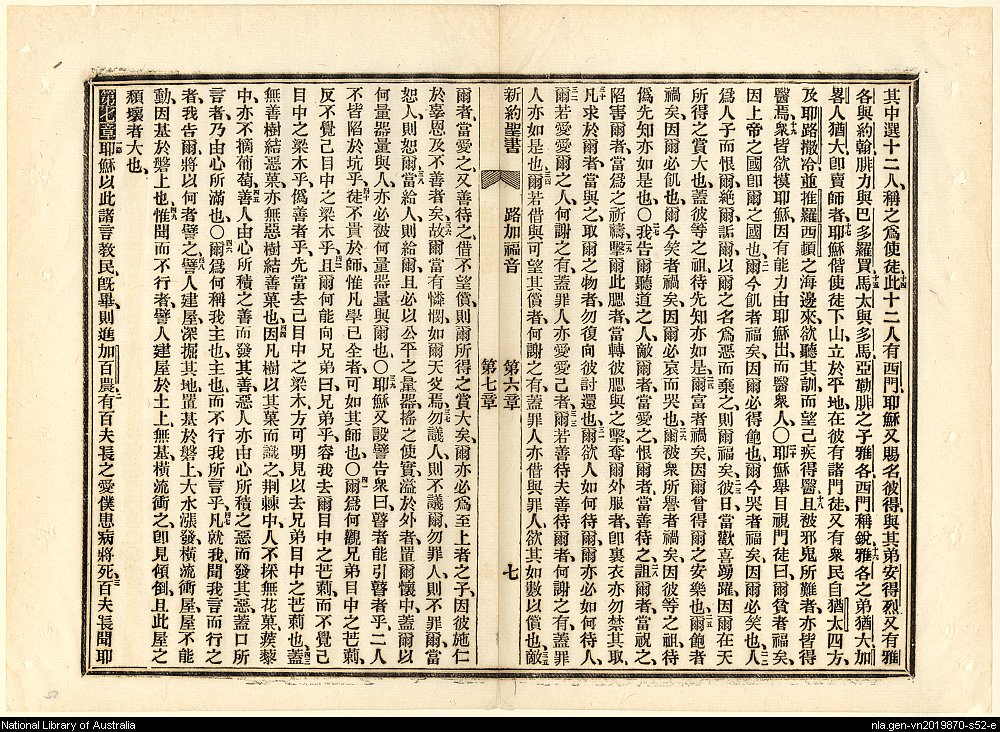 其中選十二人、稱之爲使徒、十四此十二人有西門、耶穌又賜名彼得、與其弟安得烈、又有雅
各與約翰、腓力與巴多羅買、馬太與多馬、亞勒腓之子雅各、西門稱銳、十六雅各之弟猶大、加
畧人猶大、卽賣師者、十七耶穌偕使徒下山、立於平地、在彼有諸門徒、又有衆民、自猶太四方、
及耶路撒冷、並推羅西頓之海邊來、欲聽其訓、而望己疾得醫、十八且被邪鬼所難者、亦皆得
醫焉、十九衆皆欲摸耶穌、因有能力由耶穌出而醫衆人、〇二十耶穌舉目視門徒曰、爾貧者福矣、
因上帝之國、卽爾之國也、二一爾今飢者福矣、因爾必得飽也、爾今哭者福矣、因爾必笑也、二二人
爲人子而恨爾、絕爾、詬爾、以爾之名爲惡而棄之、則爾福矣、二三彼日當歡喜踴躍、因爾在天
所得之賞大也、蓋彼等之祖、待先知亦如是、二四爾富者禍矣、因爾曾得爾之安樂也、二五爾飽者
禍矣、因爾必飢也、爾今笑者禍矣、因爾必哀而哭也、二六爾被衆所譽者禍矣、因彼等之祖、待
僞先知亦如是也、〇二七我告爾聽道之人、敵爾者、當愛之、恨爾者、當善待之、二八詛爾者、當祝之、
陷害爾者、當爲之祈禱、二九擊爾此腮者、當轉彼腮與之擊、奪爾外服者、卽裏衣亦勿禁其取、
三十凡求於爾者、當與之、取爾之物者、勿復向彼討還也、三一爾欲人如何待爾、爾亦必如何待人、
三二爾若愛愛爾之人、何謝之有、蓋罪人亦愛愛己者、三三爾若善待夫善待爾者、何謝之有、蓋罪
人亦如是也、三四爾若借與可望其償者、何謝之有、蓋罪人亦借與罪人、欲其如數以償也、三五敵
新約聖書 路加福音 第六章 第七章 七
爾者、當愛之、又善待之、借不望償、則爾所得之賞大矣、爾亦必爲至上者之子、因彼施仁
於辜恩及不善者矣、三六故爾當有憐憫、如爾天父焉、三七勿議人、則不議爾、勿罪人、則不罪爾、當
恕人、則恕爾、三八當給人、則給爾、且必以公平之量器、搖之使實、溢於外者、置爾懷中、蓋爾以
何量器量與人、亦必彼何量器量與爾也、〇三九耶穌又設譬告衆曰、瞽者能引瞽者乎、二人
不皆陷於坑乎、四十徒不貴於師、惟凡學已全者、可如其師也、〇四一爾爲何觀兄弟目中之芒莿、
反不覺己目中之梁木乎、四二且爾何能向兄弟曰、兄弟乎、容我去爾目中之芒莿、而不覺己
目中之梁木乎、僞善者乎、先當去己目中之梁木、方可明見以去兄弟目中之芒莿也、四三蓋
無善樹結惡菓、亦無惡樹結善菓也、四四因凡樹以其菓而識之、荆棘中人不採無花菓、蒺藜
中亦不摘葡萄、四五善人由心所積之善而發其善、惡人亦由心所積之惡而發其惡、蓋口所
言者、乃由心所滿也、〇四六爾爲何稱我主也、主也、而不行我所言乎、四七凡就我聞我言而行之
者、我告爾將以何者譬之、四八譬人建屋、深掘其地、置基於磐上、大水漲發、橫流衝屋、屋不能
動、因基於磐上也、四九惟聞而不行者、譬人建屋於土上無基、橫流衝之、卽見傾倒、且此屋之
頹壞者大也、
第七章 一耶穌以此諸言教民、旣畢、則進加百農、二有百夫長之愛僕、患病將死、三百夫長聞耶
52
National Library of Australia
nla.gen-vn2019870-s52-e